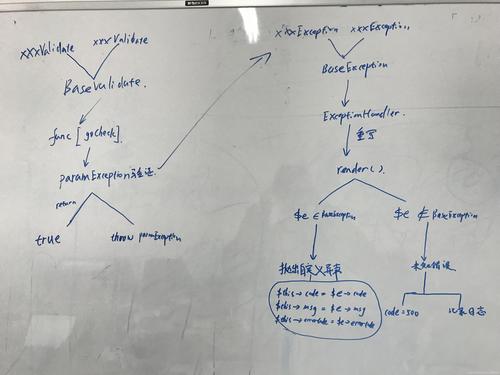 xxxValidate xxxValidate
BaseValidate.
func [goCheck].
paramException验证.
return
true
throw paramException
xxxException xxxException
BaseException
ExceptionHandler.
重写
render().
$e ∈ BaseException
$e ∉ BaseException
抛出自定义异常
未知错误
$this→code = $e→code
$this→msg = $e→msg
$this→errorCode = $e→errorCode
code=500
记录日志